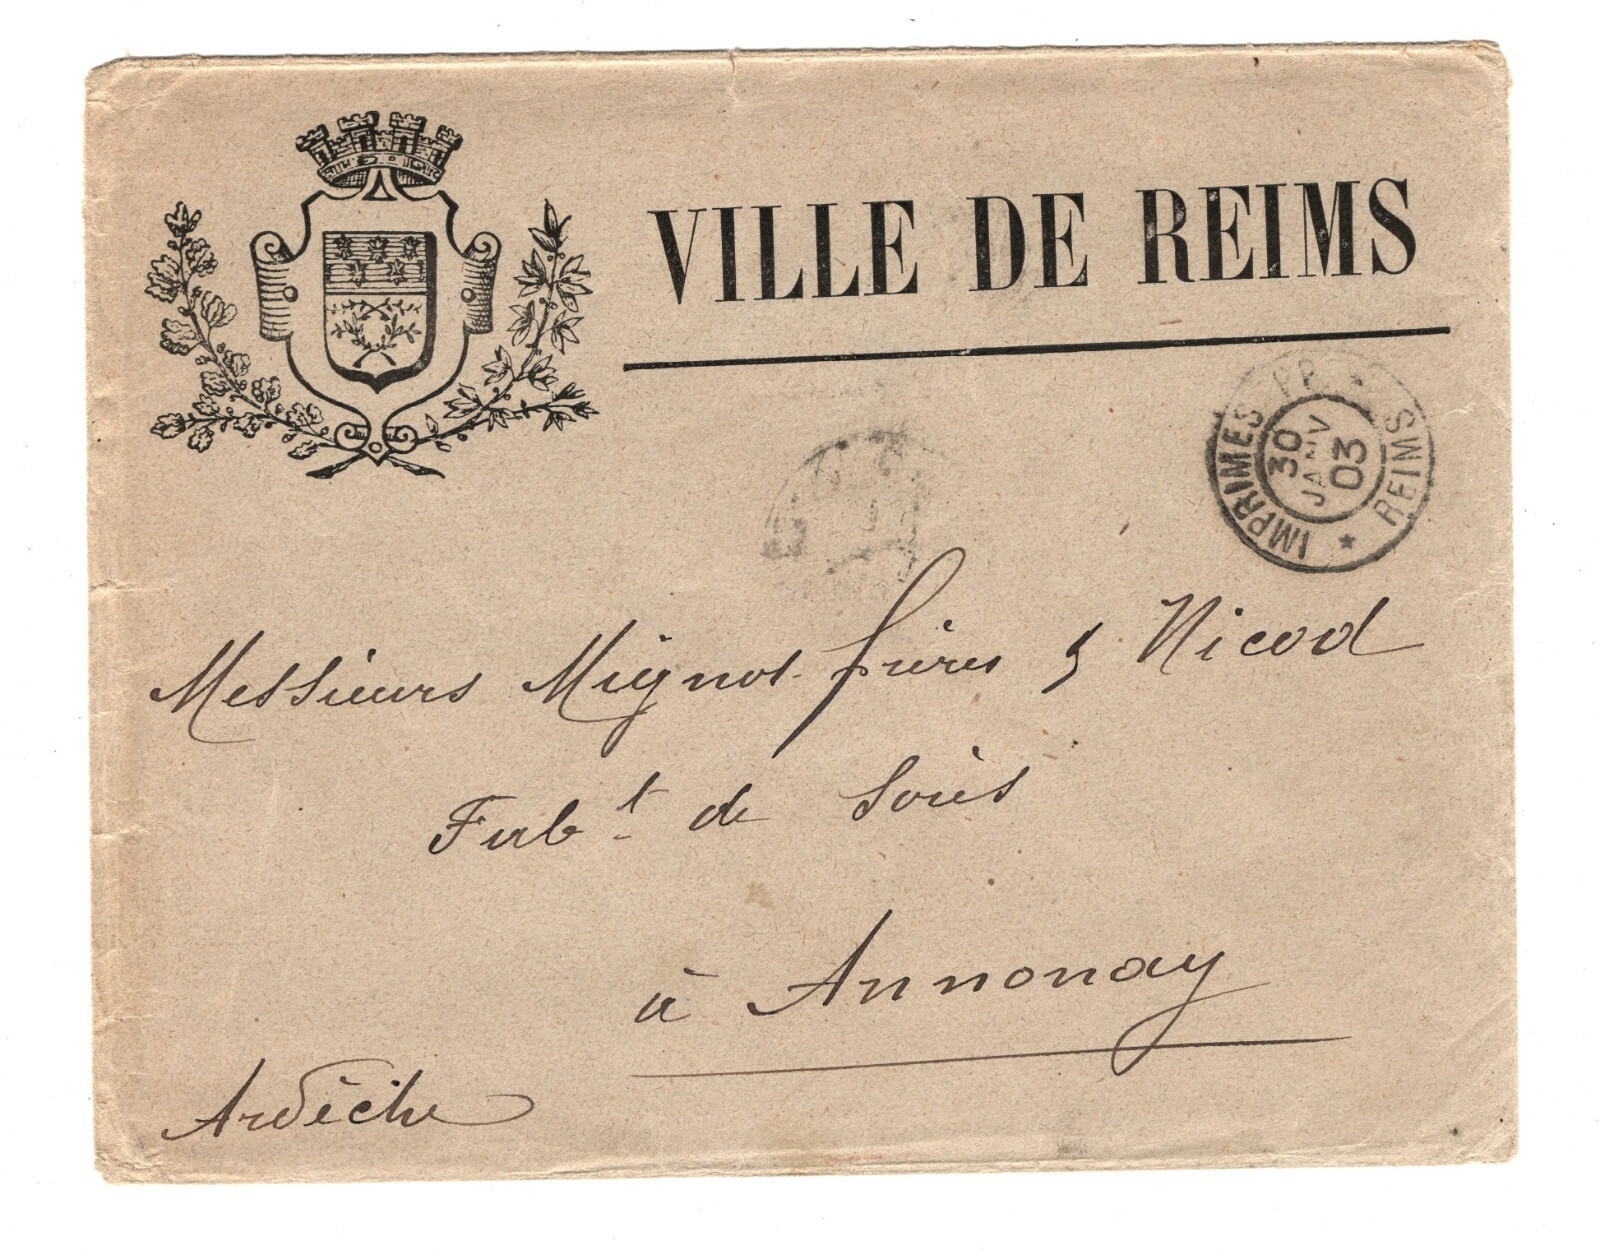 VILLE DE REIMS
IMPRIMES PP * REIMS *
30
JANV
03
Messieurs Mignot frères & Nicod
Fab.t de Soies
à Annonay
Ardèche